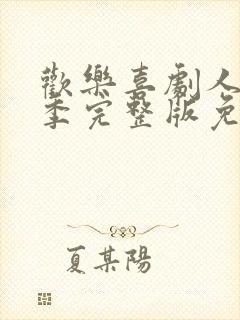 歡樂喜劇人
季完整版免
夏某陽